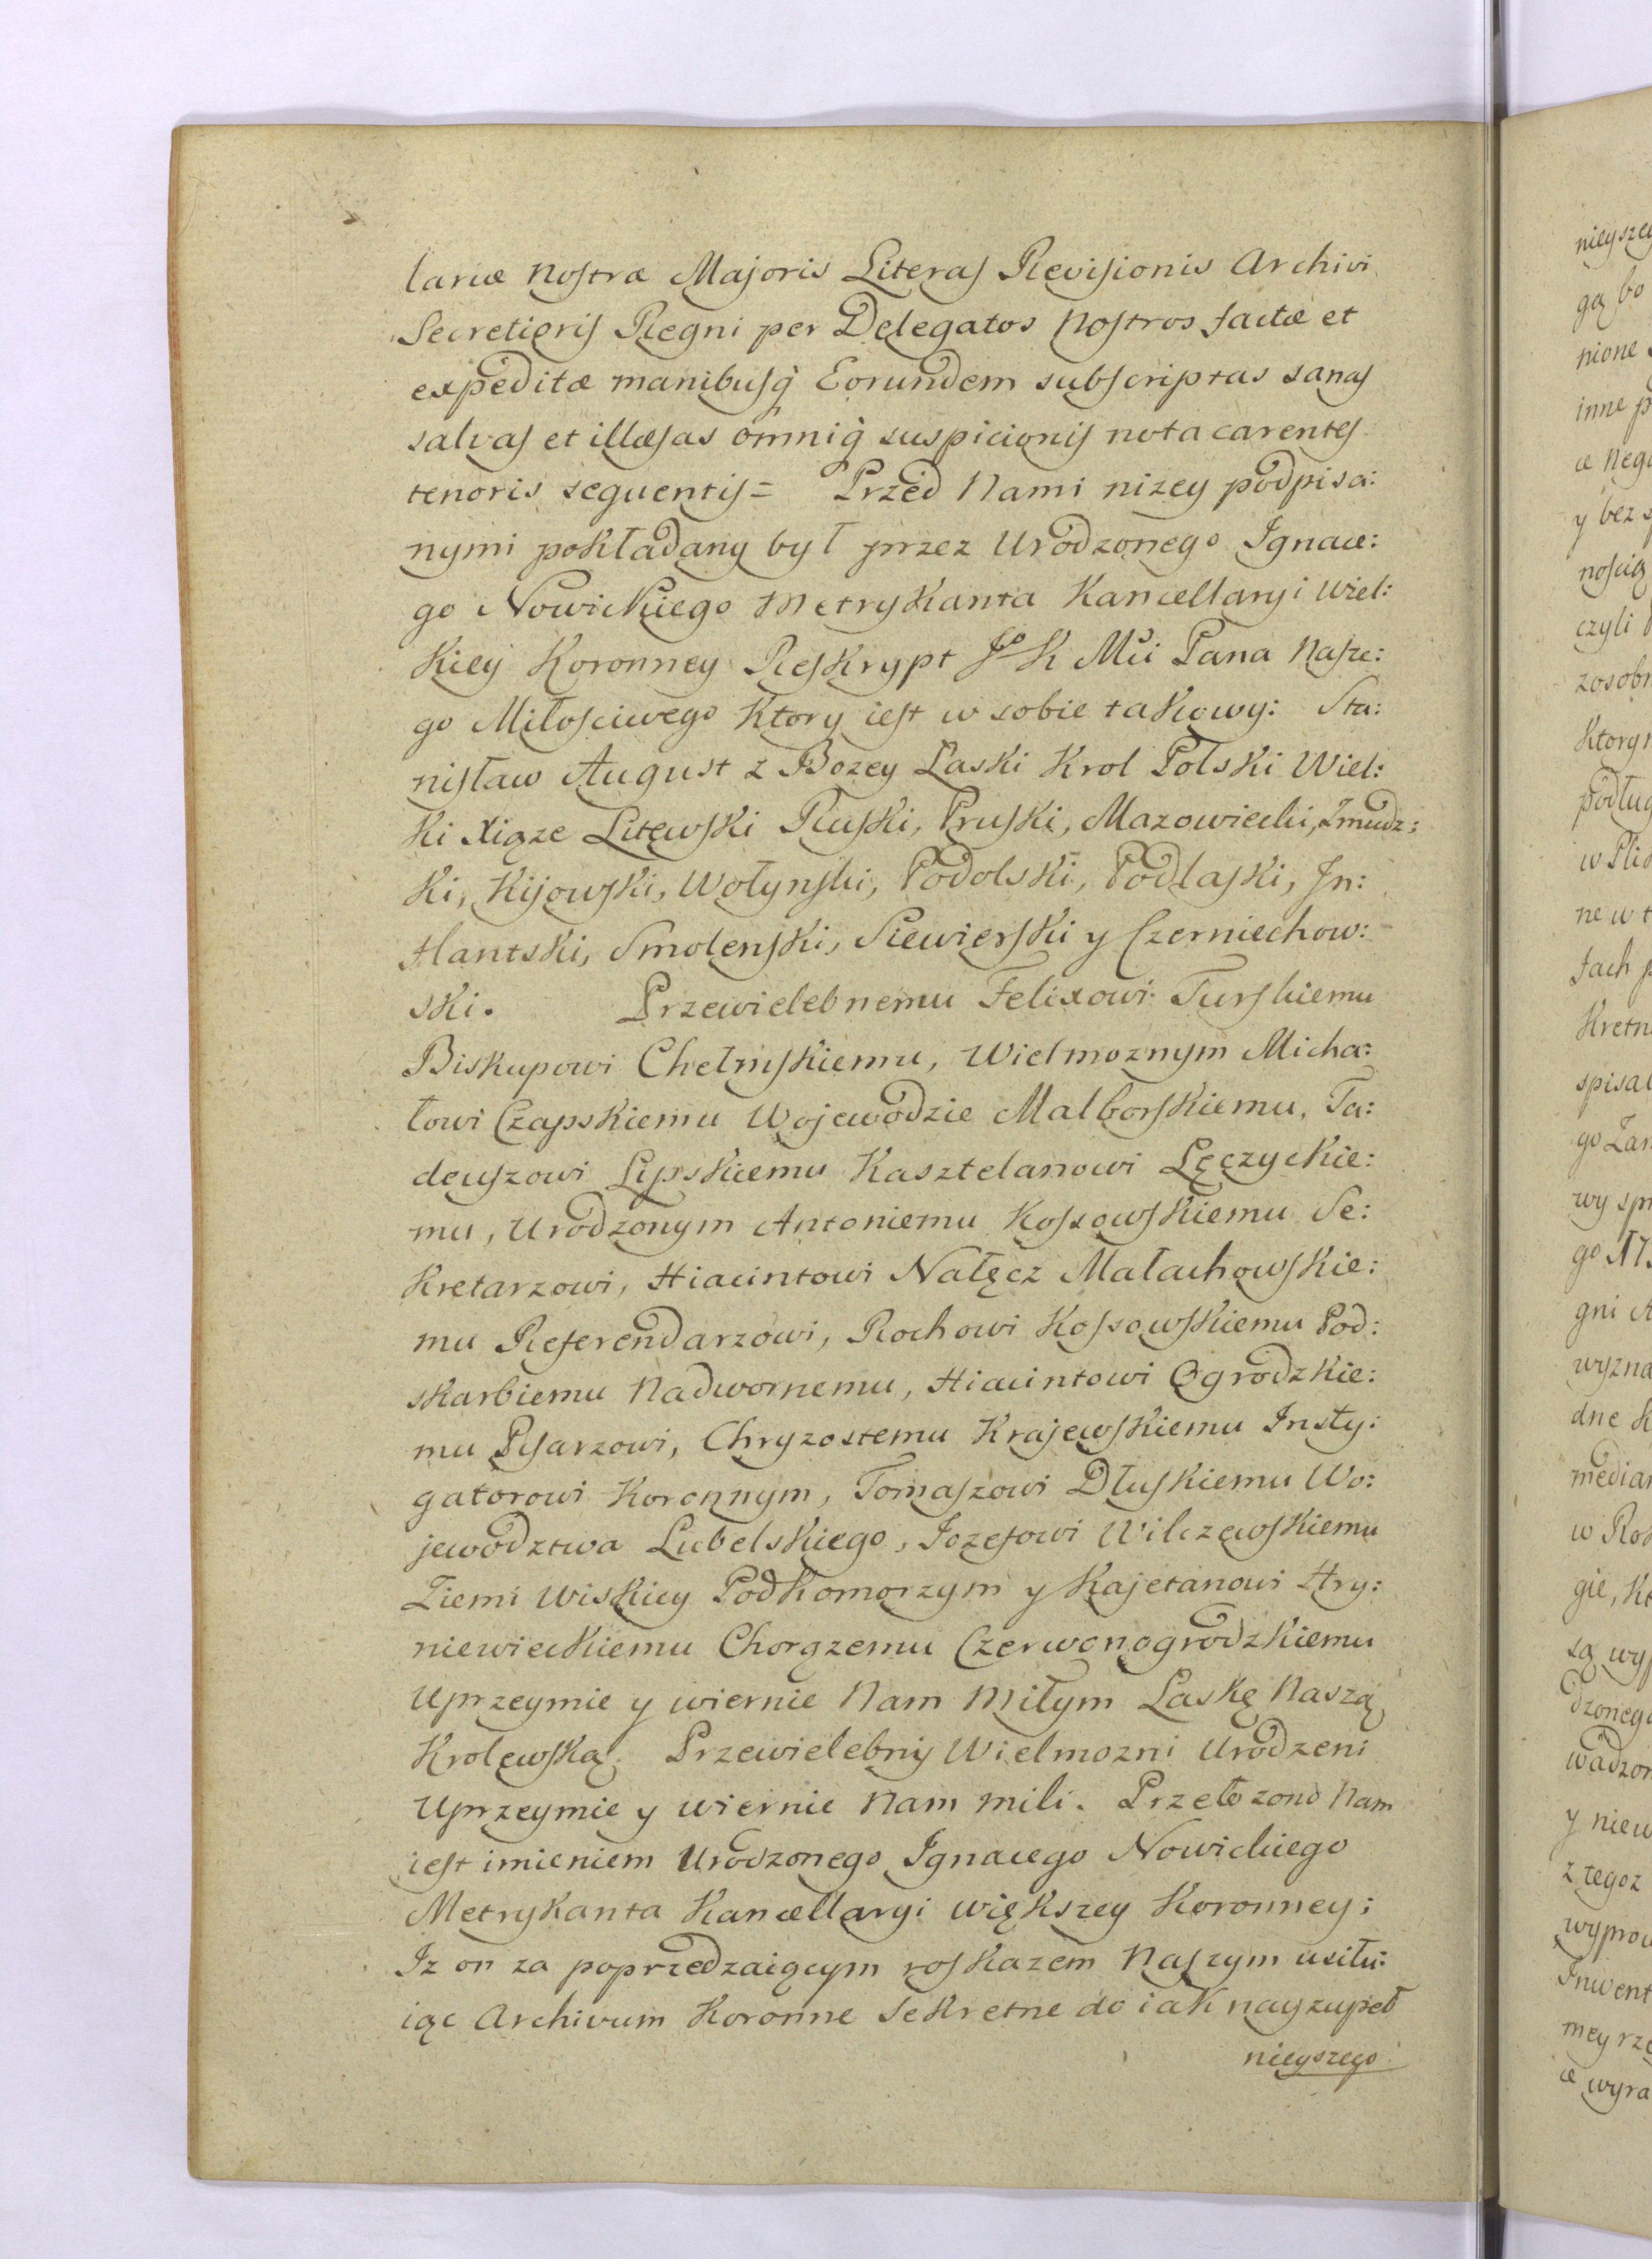 lariæ Nostræ Majoris Literas Revisionis Archivi
Secretioris Regni per Delegatos Nostros factæ et
expeditæ manibusq́ Eorundem subscriptas sanas
salvas et illæsas omniq́ suspicionis nota carentes
tenoris sequentis = Przed Nami nizey podpisa:
nymi pokładany był przez Urodzonego Ignace:
go Nowickiego Metrykanta Kancellaryi Wiel:
kiey Koronney Reskrypt Jo K Mci Pana Nasze:
go Miłosciwego ktory iest w sobie takowy: Sta:
nisław August z Bozey Łaski Krol Polski Wiel:
ki Xiąze Litewski Ruski, Pruski, Mazowiecki, Zmudz:
ki, Kijowski, Wołynski, Podolski, Podlaski, In:
flantski, Smolenski, Siewierski y Czerniechow:
ski. Przewielebnemu Felixowi Turskiemu
Biskupowi Chełmskiemu, Wielmoznym Micha:
łowi Czapskiemu Wojewodzie Malborskiemu, Ta:
deuszowi Lipskiemu Kasztelanowi Łęczyckie:
mu, Urodzonym Antoniemu Kossowskiemu Se:
kretarzowi, Hiacintowi Nałęcz Małachowskie:
mu Referendarzowi, Rochowi Kossowskiemu Pod:
skarbiemu Nadwornemu, Hiacintowi Ogrodzkie:
mu Pisarzowi, Chryzostemu Krajewskiemu Insty:
gatorowi Koronnym, Tomaszowi Dłuskiemu Wo:
jewodztwa Lubelskiego, Iozefowi Wilczewskiemu
Ziemi Wiskiey Podkomorzym y Kajetanowi Hry:
niewieckiemu Chorązemu Czerwonogrodzkiemu
Uprzeymie y wiernie Nam Miłym Łaskę Naszą
Krolewską. Przewielebny Wielmozni Urodzeni
Uprzeymie y wiernie Nam mili. Przełozono Nam
iest imieniem Urodzonego Ignacego Nowickiego
Metrykanta Kancellaryi większey Koronney;
Iz on za poprzedzaiącym roskazem Naszym usiłu:
iąc Archivum Koronne Sekretne do iak nayzupeł
nieyszego